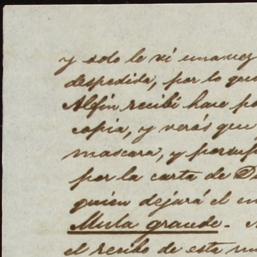 y solo le vi una vez
despedida, por lo que
Alfin recibi hace po
copia, y verás que
mascara, y por
por la carta de D
quien dejará el en
Mula grande. 
el recibo de esta